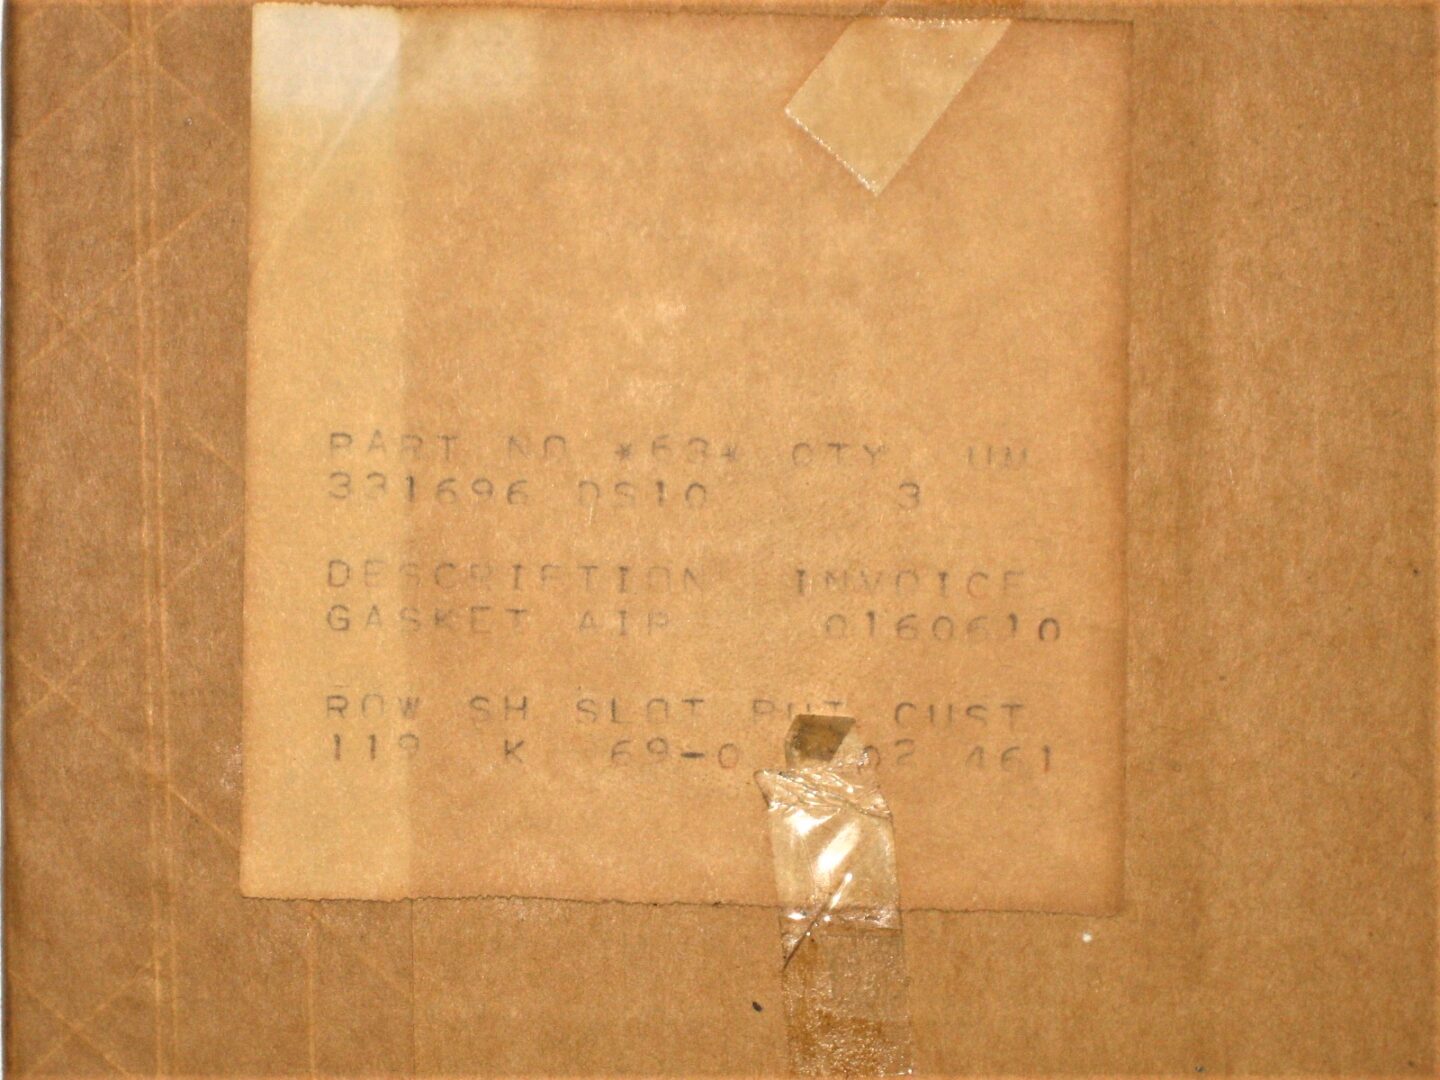 PART NO *63* QTY UM
331696 DS10 3
DESCRIPTION INVOICE
GASKET AIR 0160610
ROW SH SLOT CUST
119 K 69-0 02 461